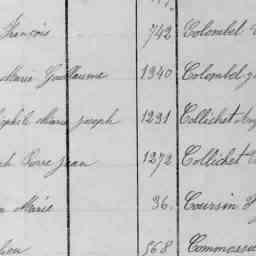 François 742 Colombel
Marie Guillaume 1940 Colombel
Marie Joseph 1291 Collichet
Pierre Jean 1272 Collichet
Marie 36. Coursin
568 Commosse